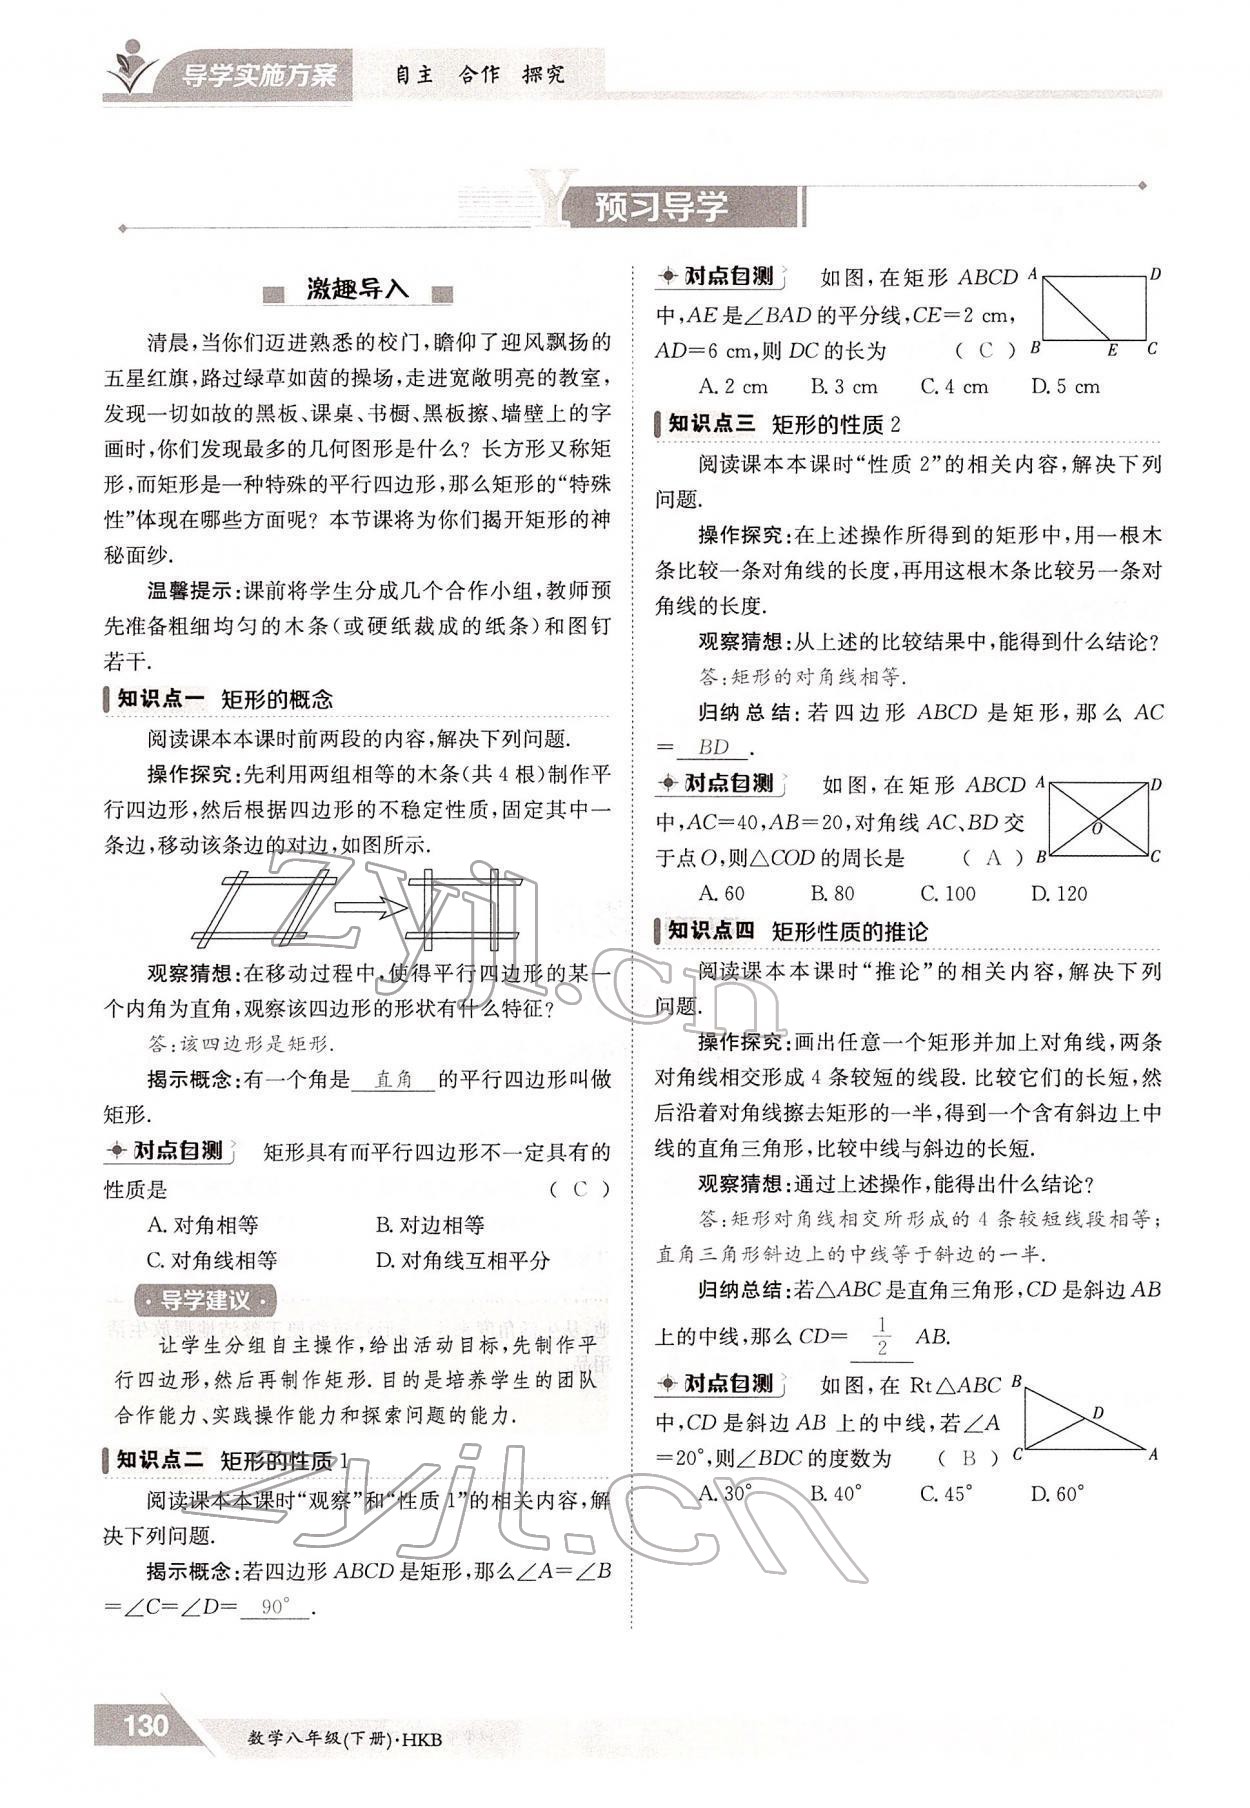 导学实施方案 自主 合作 探究
预习导学
激趣导入
清晨,当你们迈进熟悉的校门,瞻仰了迎风飘扬的
五星红旗,路过绿草如茵的操场,走进宽敞明亮的教室,
发现一切如故的黑板、课桌、书橱、黑板擦、墙壁上的字
画时,你们发现最多的几何图形是什么? 长方形又称矩
形,而矩形是一种特殊的平行四边形,那么矩形的“特殊
性”体现在哪些方面呢? 本节课将为你们揭开矩形的神
秘面纱.
温馨提示:课前将学生分成几个合作小组,教师预
先准备粗细均匀的木条(或硬纸裁成的纸条)和图钉
若干.
知识点一 矩形的概念
阅读课本本课时前两段的内容,解决下列问题.
操作探究:先利用两组相等的木条(共 4 根)制作平
行四边形,然后根据四边形的不稳定性质,固定其中一
条边,移动该条边的对边,如图所示.
观察猜想:在移动过程中,使得平行四边形的某一
个内角为直角,观察该四边形的形状有什么特征?
答:该四边形是矩形.
揭示概念:有一个角是 直角 的平行四边形叫做
矩形.
对点自测 矩形具有而平行四边形不一定具有的
性质是 ( C )
A. 对角相等 B. 对边相等
C. 对角线相等 D. 对角线互相平分
· 导学建议 ·
让学生分组自主操作,给出活动目标,先制作平
行四边形,然后再制作矩形. 目的是培养学生的团队
合作能力、实践操作能力和探索问题的能力.
知识点二 矩形的性质 1
阅读课本本课时“观察”和“性质 1”的相关内容,解
决下列问题.
揭示概念:若四边形 ABCD 是矩形,那么∠A=∠B
=∠C=∠D= 90° .
对点自测 如图,在矩形 ABCD
中,AE 是∠BAD 的平分线,CE=2 cm,
AD=6 cm,则 DC 的长为 ( C )
A. 2 cm B. 3 cm C. 4 cm D. 5 cm
A D
B E C
知识点三 矩形的性质 2
阅读课本本课时“性质 2”的相关内容,解决下列
问题.
操作探究:在上述操作所得到的矩形中,用一根木
条比较一条对角线的长度,再用这根木条比较另一条对
角线的长度.
观察猜想:从上述的比较结果中,能得到什么结论?
答:矩形的对角线相等.
归纳总结:若四边形 ABCD 是矩形,那么 AC
= BD .
对点自测 如图,在矩形 ABCD
中,AC=40,AB=20,对角线 AC、BD 交
于点 O,则△COD 的周长是 ( A )
A. 60 B. 80 C. 100 D. 120
A D
O
B C
知识点四 矩形性质的推论
阅读课本本课时“推论”的相关内容,解决下列
问题.
操作探究:画出任意一个矩形并加上对角线,两条
对角线相交形成 4 条较短的线段. 比较它们的长短,然
后沿着对角线擦去矩形的一半,得到一个含有斜边上中
线的直角三角形,比较中线与斜边的长短.
观察猜想:通过上述操作,能得出什么结论?
答:矩形对角线相交所形成的 4 条较短线段相等;
直角三角形斜边上的中线等于斜边的一半.
归纳总结:若△ABC 是直角三角形,CD 是斜边 AB
上的中线,那么 CD= 1/2 AB.
对点自测 如图,在 Rt△ABC
中,CD 是斜边 AB 上的中线,若∠A
=20°,则∠BDC 的度数为 ( B )
A. 30° B. 40° C. 45° D. 60°
B
D
C A
zyjl.cn
zyjl.cn
130 数学八年级(下册)·HKB